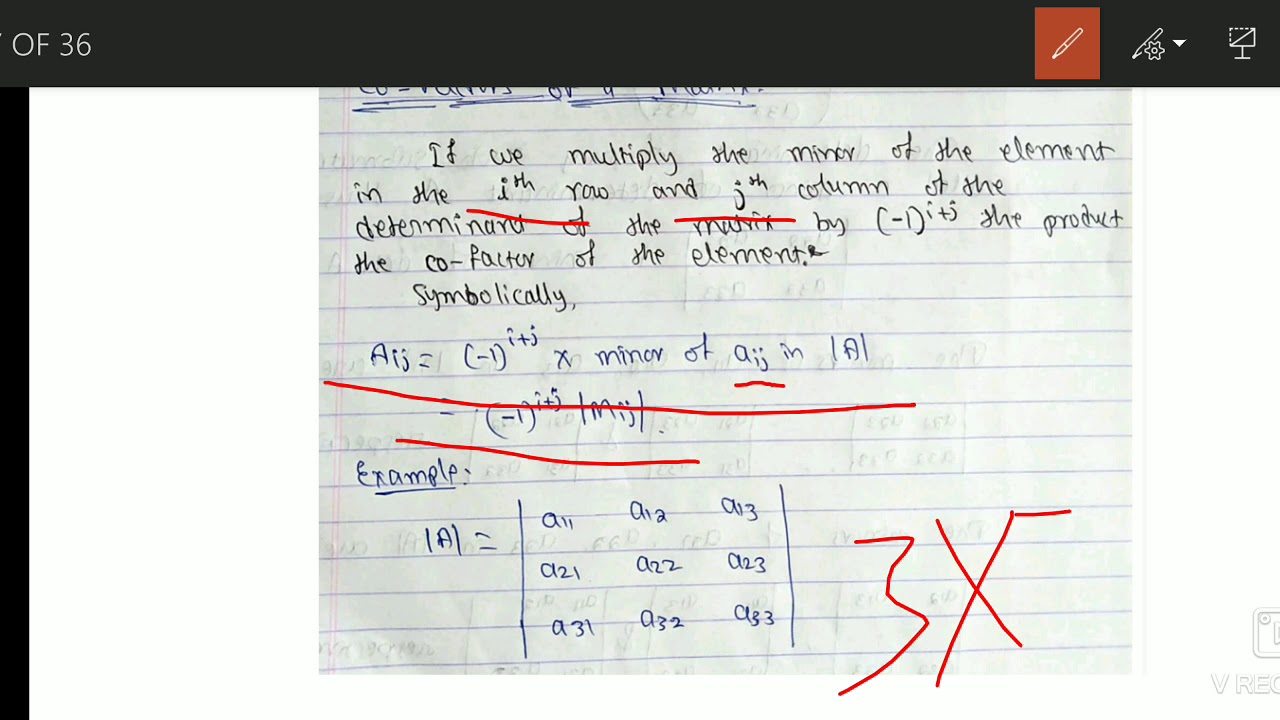 OF 36
Co-factors of a matrix.
If we multiply the minor of the element
in the ith row and jth column of the
determinant of the matrix by (-1)^i+j the product
the co-factor of the element.
Symbolically,
Aij = (-1)^i+j x minor of aij in |A|
= (-1)^i+j |Mij|.
Example:
|A| =
a11 a12 a13
a21 a22 a23
a31 a32 a33
3X
V REC